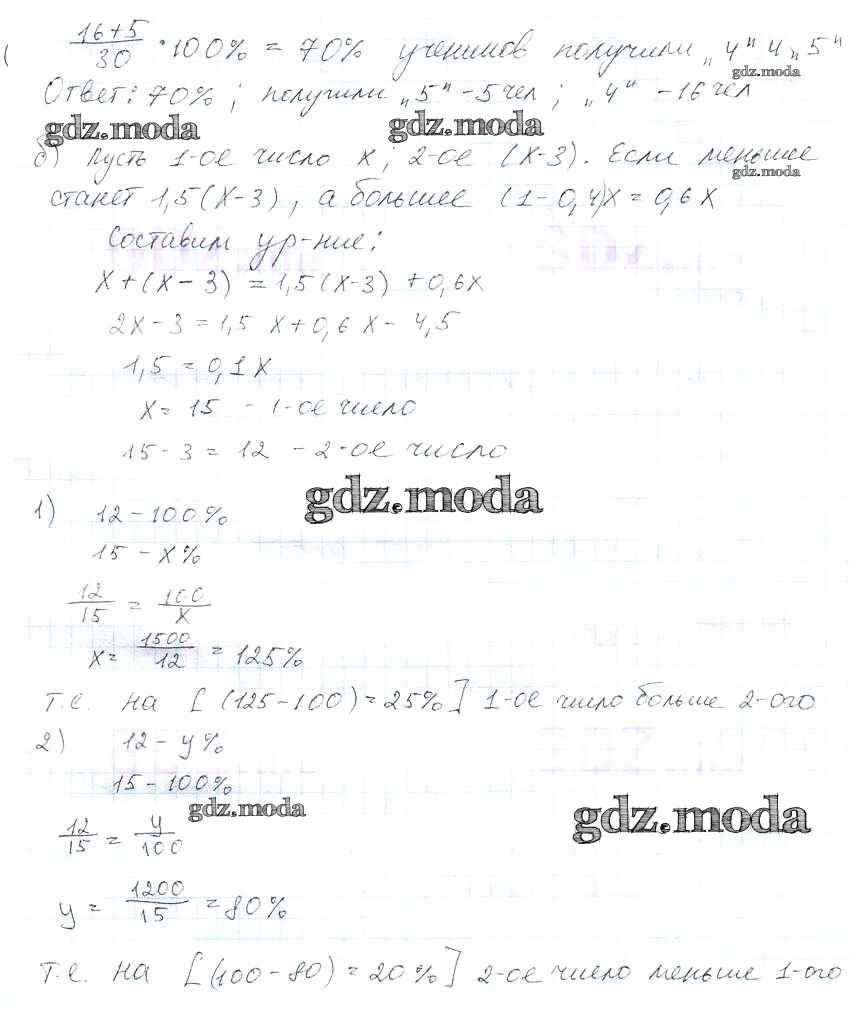 ( (16+5)/30 · 100% = 70% учеников получили „4" и „5"
gdz.moda
Ответ: 70%; получили „5" - 5 чел; „4" - 16 чел
gdz.moda gdz.moda
б) Пусть 1-ое число x; 2-ое (x-3). Если меньшее
gdz.moda
станет 1,5(x-3), а большее (1-0,4)x = 0,6x
Составим ур-ние:
x+(x-3) = 1,5(x-3) + 0,6x
2x-3 = 1,5 x+0,6 x - 4,5
1,5 = 0,1x
x = 15 - 1-ое число
15-3 = 12 - 2-ое число
gdz.moda
1) 12 - 100%
15 - x%
12/15 = 100/x
x = 1500/12 = 125%
т.е. на [(125-100) = 25%] 1-ое число больше 2-ого
2) 12 - y%
15 - 100%
gdz.moda gdz.moda
12/15 = y/100
y = 1200/15 = 80%
т.е. на [(100-80) = 20%] 2-ое число меньше 1-ого